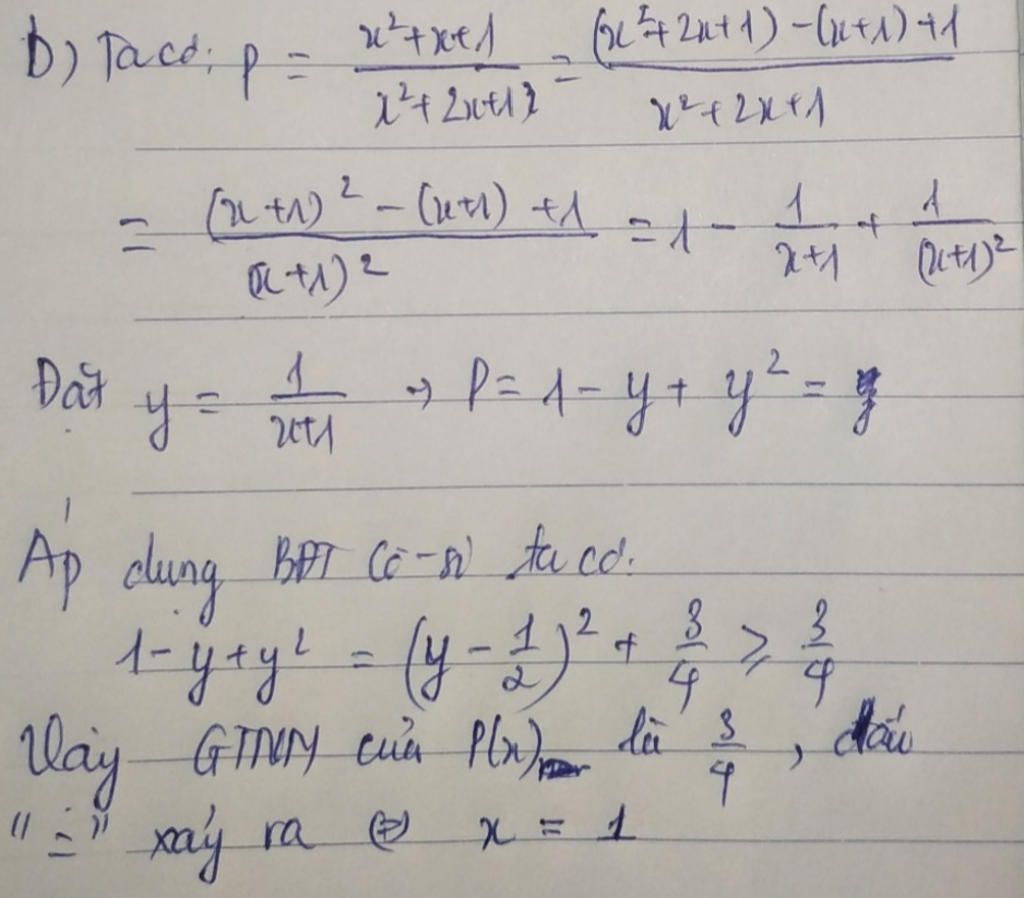 b) Ta có: P = (x²+x+1)/(x²+2x+1) = ((x²+2x+1)-(x+1)+1)/(x²+2x+1)
= ((x+1)²-(x+1)+1)/((x+1)²) = 1 - 1/(x+1) + 1/(x+1)²
Đặt y = 1/(x+1) → P = 1 - y + y² =
Áp dụng BĐT Cô-si ta có:
1-y+y² = (y - 1/2)² + 3/4 ≥ 3/4
Vậy GTNN của P(x) là 3/4, dấu
"=" xảy ra ⇔ x = 1